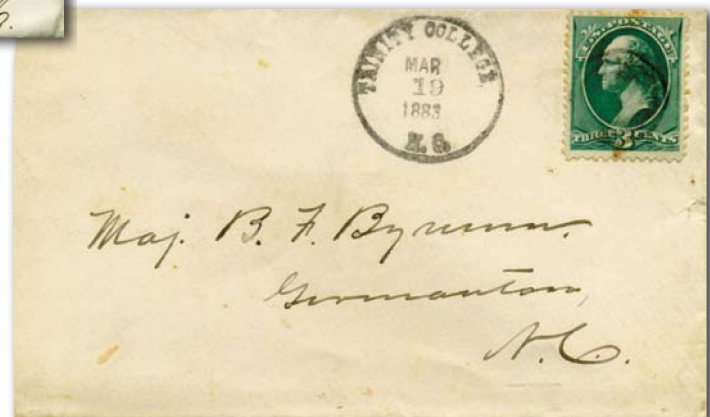 TRINITY COLLEGE,
MAR
19
1883
N. C.
U.S. POSTAGE
THREE 3 CENTS
Maj. B. F. Bynum.
Germanton,
N.C.